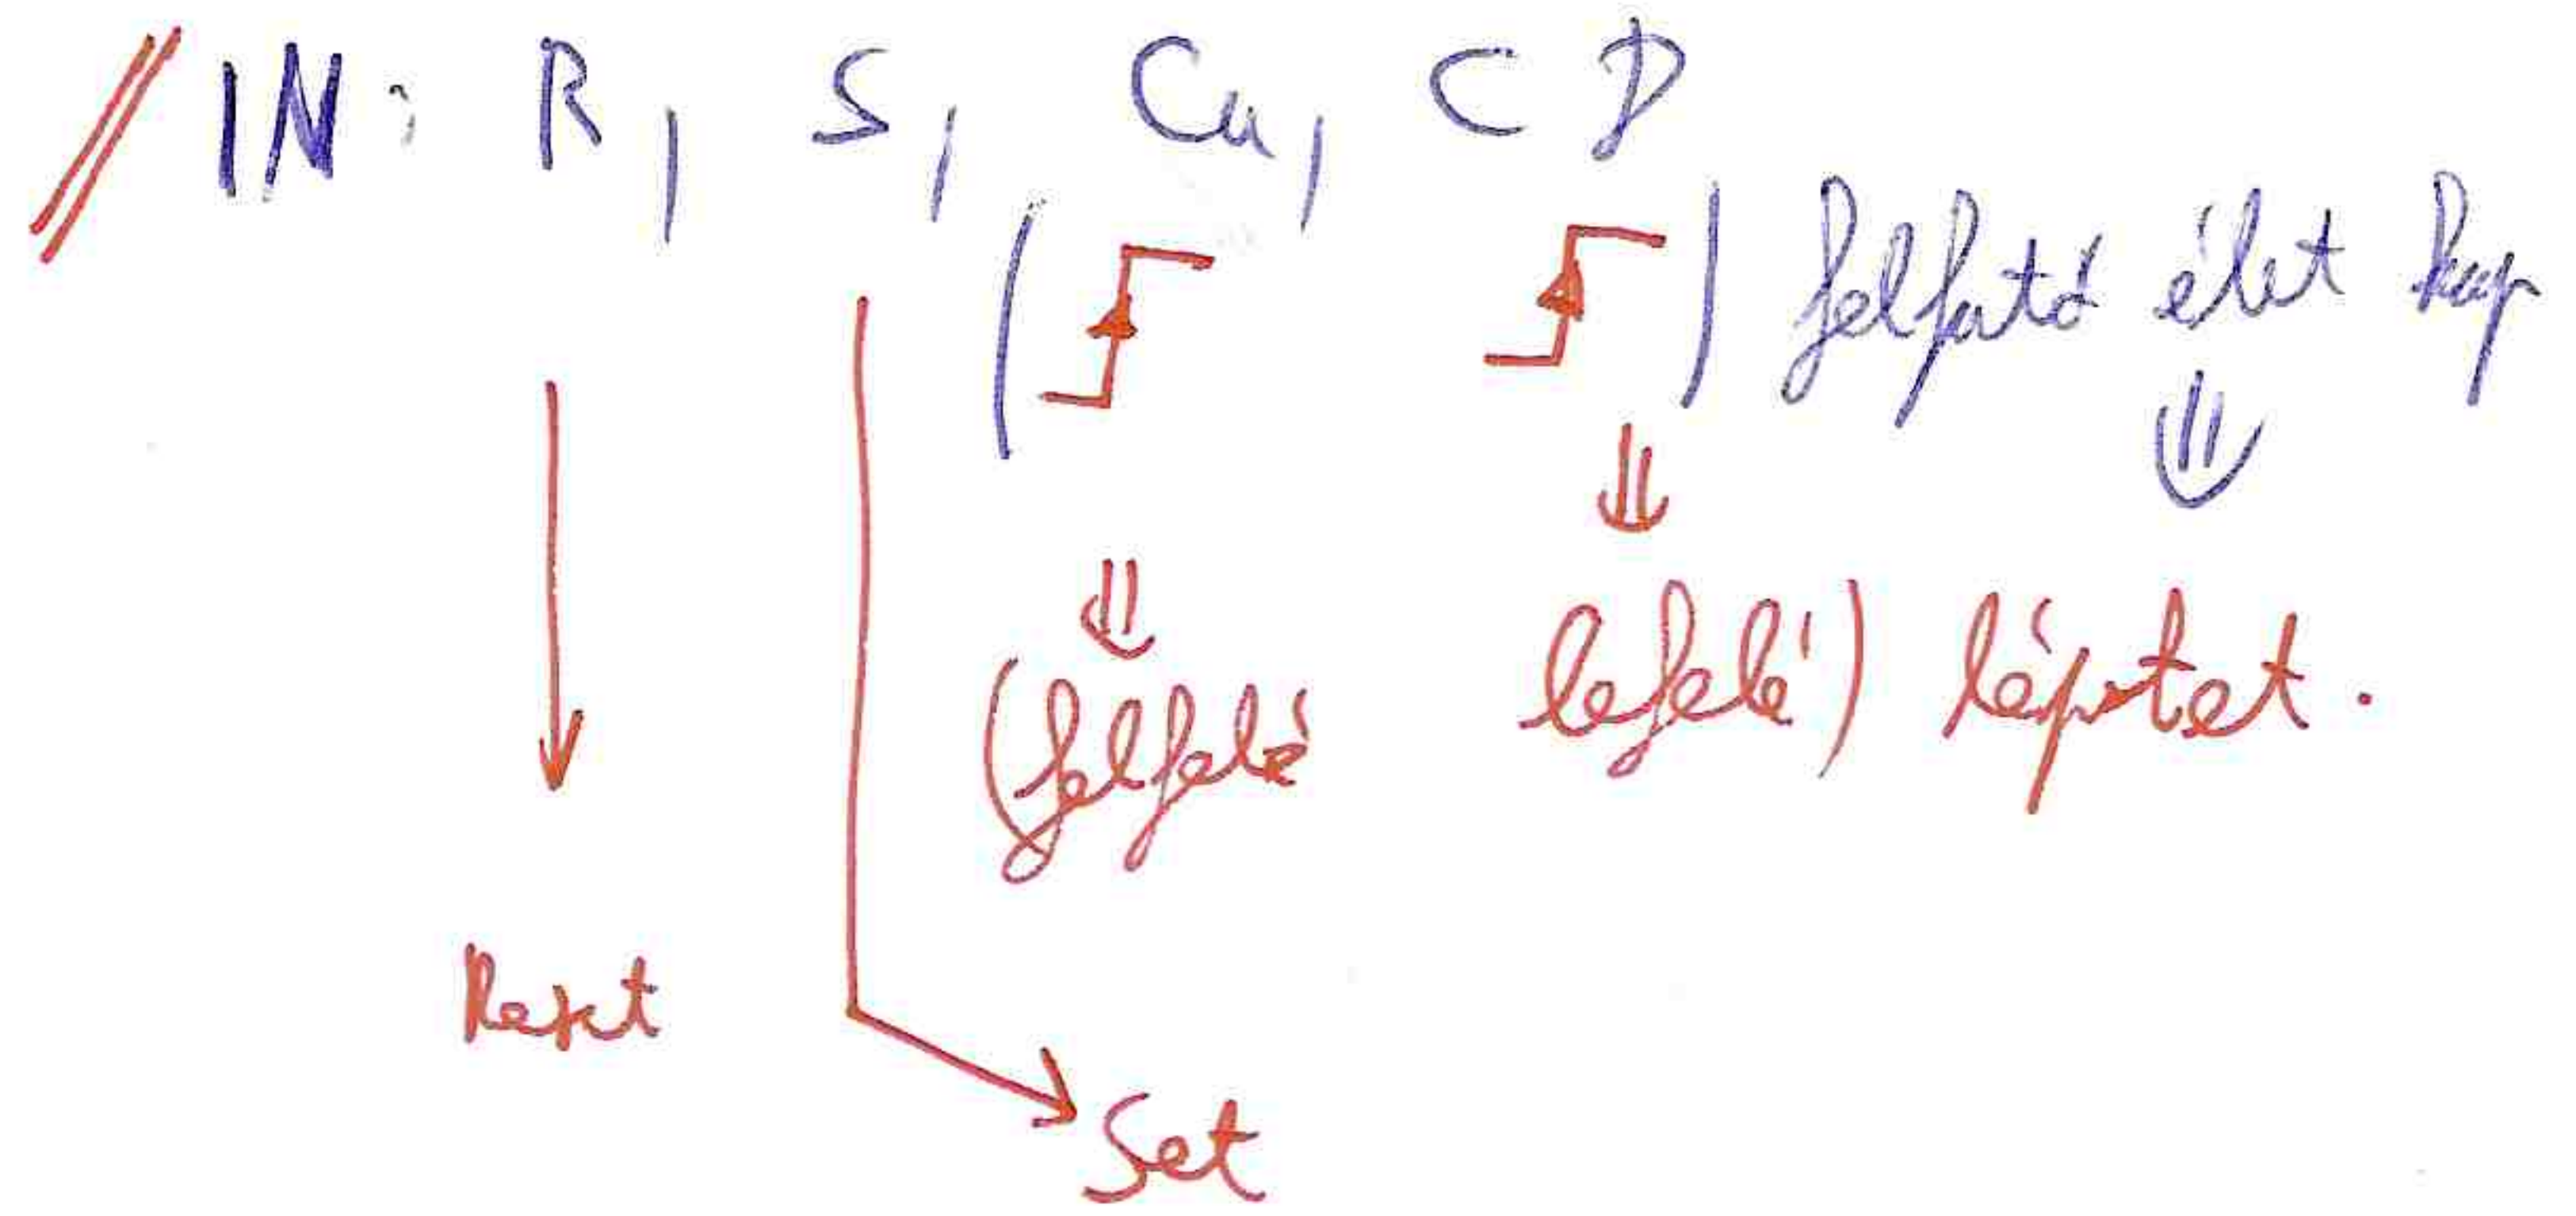 // IN: R, S, Cu, CD
( ) felfutó élet kap
(felfelé lefelé) léptet.
Reset
Set